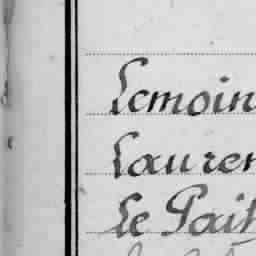 Lemoin
Lauren
Le Pait